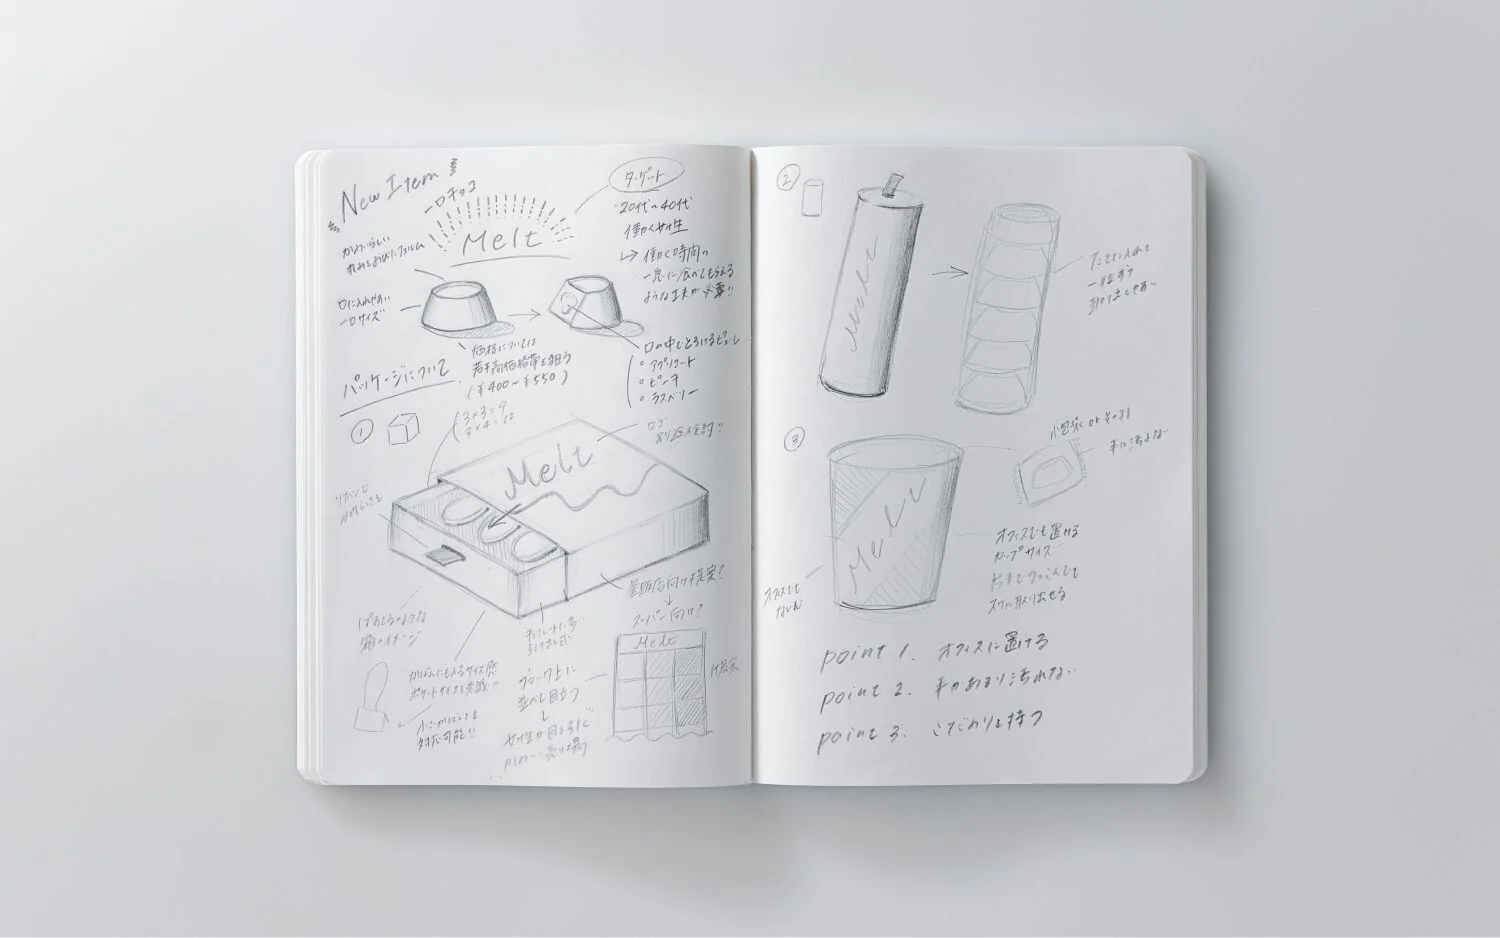 New Item
一口チョコ
Melt
かわいらしい
丸みをおびたフォルム
口に入れやすい
一口サイズ
ターゲット
20代〜40代
働く女性
↳ 働く時間の
一息に食べてもらえる
ような工夫が必要!!
価格については
若干高価格帯を狙う
(¥400〜¥550)
口の中でとろけるピューレ
アプリコット
ピーチ
ラズベリー
パッケージについて
①
3×3=9
3×4=12
ロゴ
別途検討!!
Melt
リボンで
箱のイメージ
量販店向け提案?
スーパー向け?
Melt
かばんにも入るサイズ感
ポケットサイズを意識!!
小さいかばんでも
対応可能!!
引き出し式
ブロック上に
並べて目立つ
女性の目を引く
かわいい売り場
②
Melt
たてに入れて
一粒ずつ
取り出しやすい
③
Melt
小包装 or そのまま
手に汚れない
オフィスでも置ける
カップサイズ
片手でつっこんでも
スグに取り出せる
オフィスでも
point 1. オフィスに置ける
point 2. 手があまり汚れない
point 3. こだわりを持つ